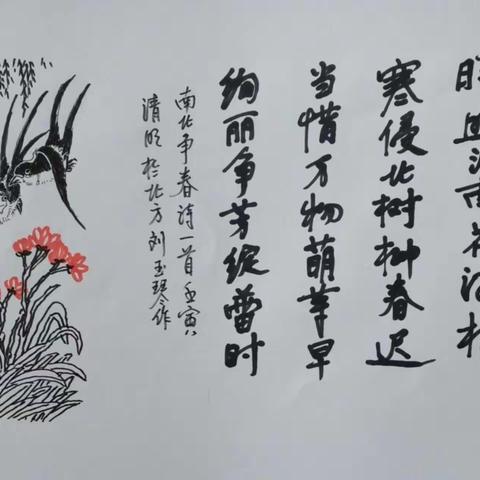 南花
寒侵北树柳春迟
当惜万物萌芽早
绚丽争芳绽蕾时
南北争春诗一首壬寅
清明於北方刘玉琴作